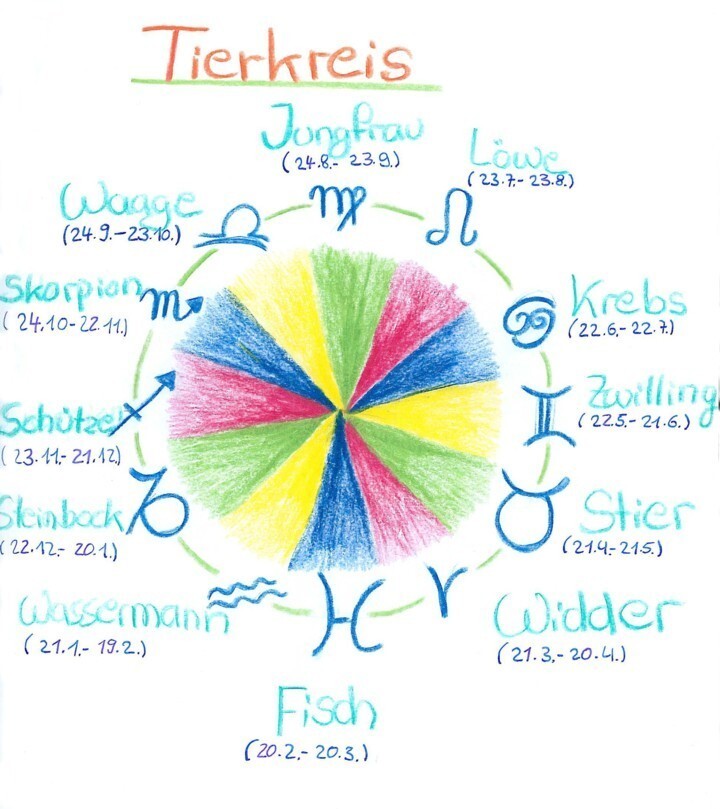 Tierkreis
Jungfrau
(24.8.- 23.9.)
Löwe
(23.7.- 23.8.)
Waage
(24.9.-23.10.)
Skorpion
(24.10-22.11.)
Krebs
(22.6.- 22.7.)
Schütze
(23.11.- 21.12.)
Zwilling
(22.5.- 21.6.)
Steinbock
(22.12.- 20.1.)
Stier
(21.4-21.5.)
Wassermann
(21.1.- 19.2.)
Widder
(21.3.- 20.4.)
Fisch
(20.2.- 20.3.)